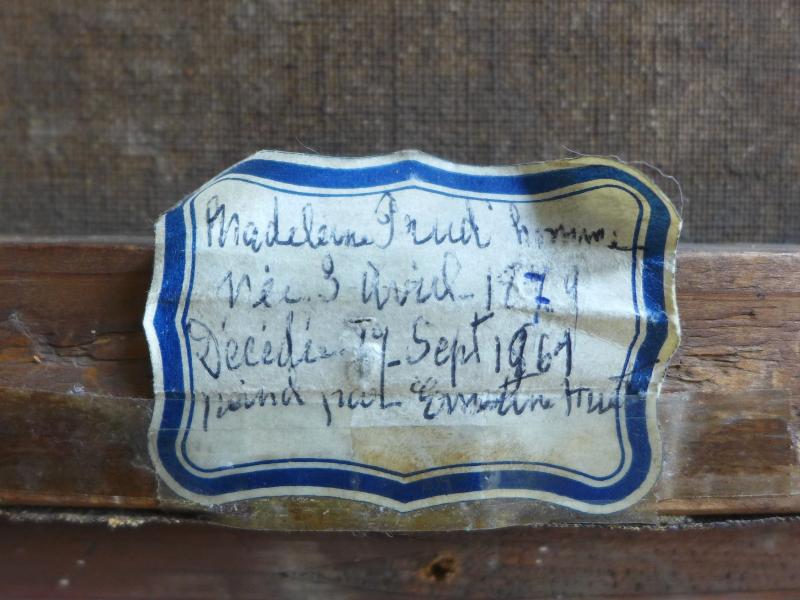 Madeleine Prud'homme
Née 3 Avril 1879
Décédée 19 Sept 1961
peind par Ernestine